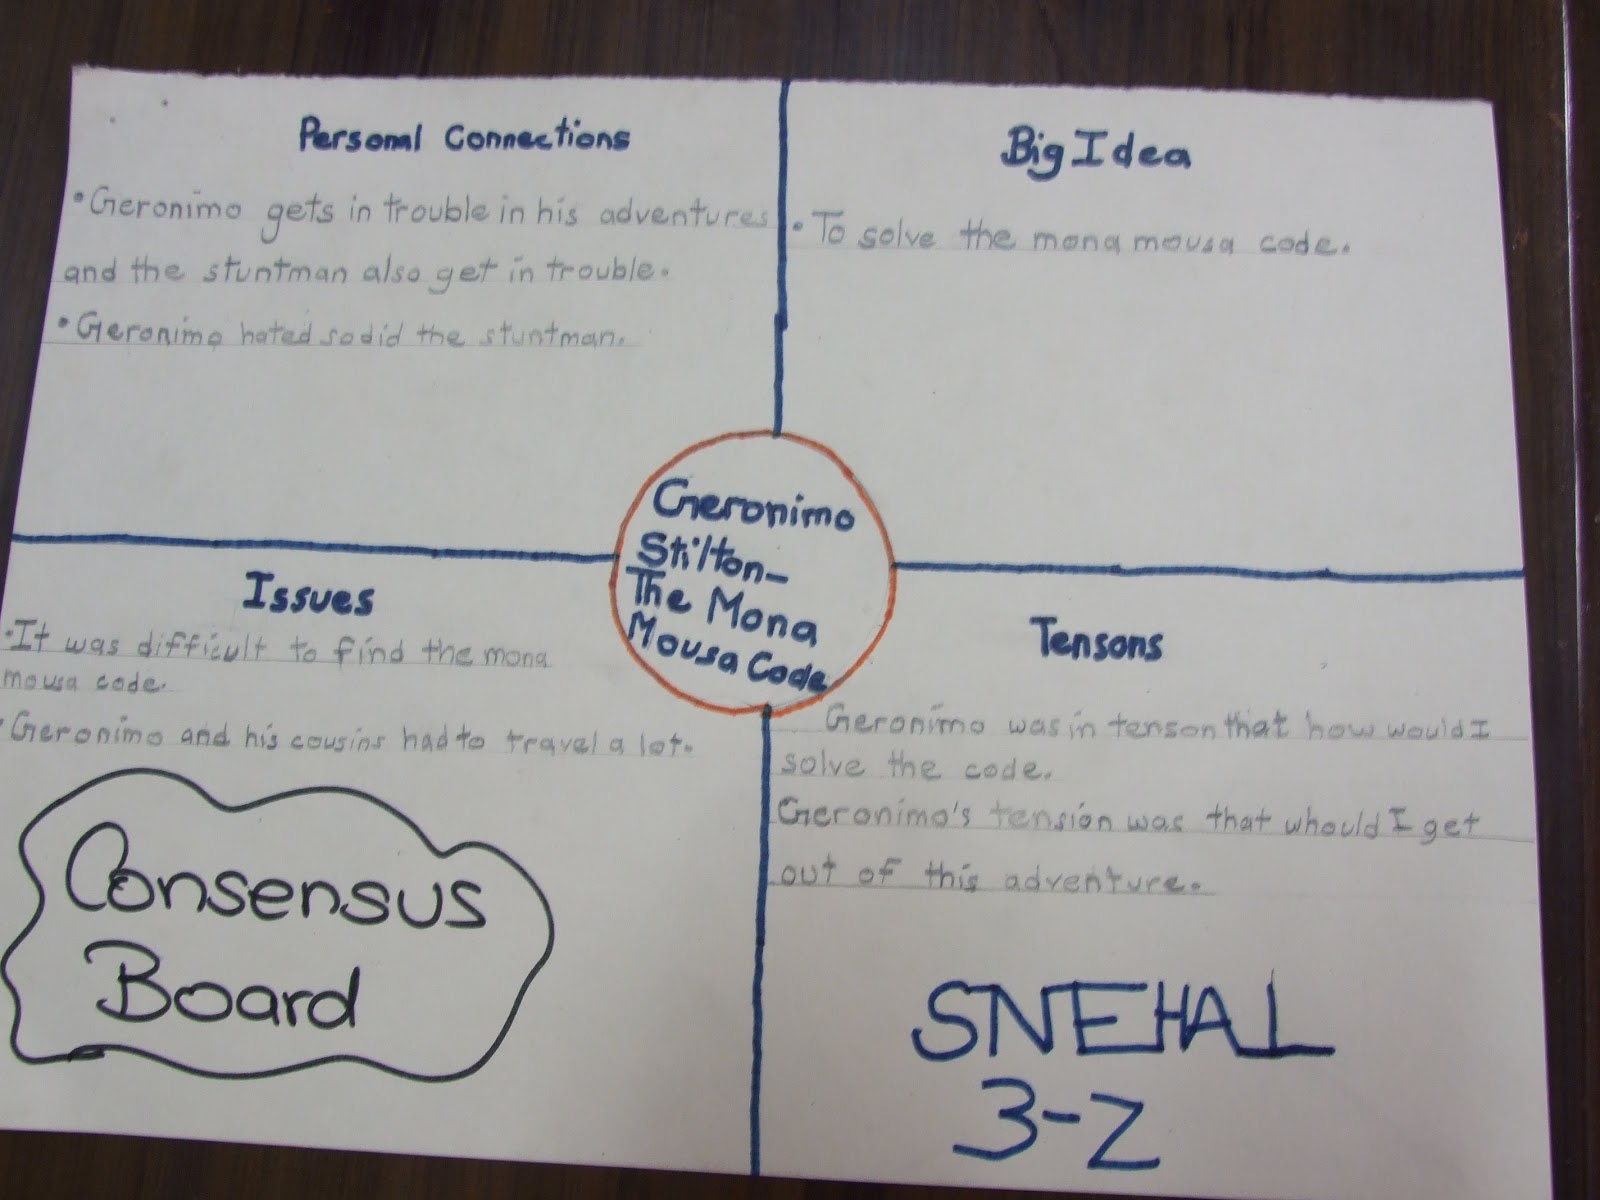 Personal Connections
• Geronimo gets in trouble in his adventures
and the stuntman also get in trouble.
• Geronimo hated so did the stuntman.
Big Idea
• To solve the mona mousa code.
Geronimo
Stilton-
The Mona
Mousa Code
Issues
• It was difficult to find the mona
mousa code.
• Geronimo and his cousins had to travel a lot.
Consensus
Board
Tensons
Geronimo was in tenson that how would I
solve the code.
Geronimo's tension was that whould I get
out of this adventure.
SNEHAL
3-Z